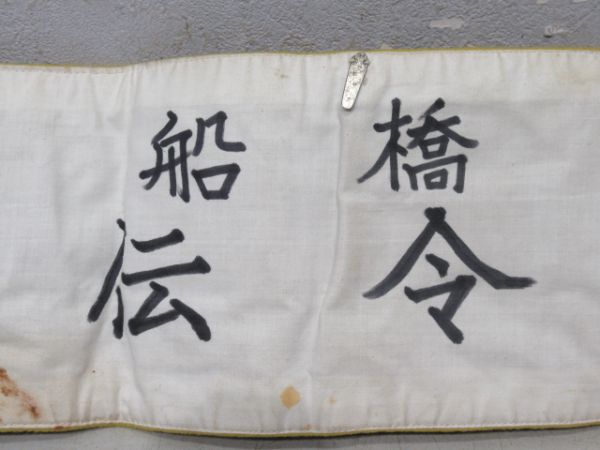 船橋
伝令